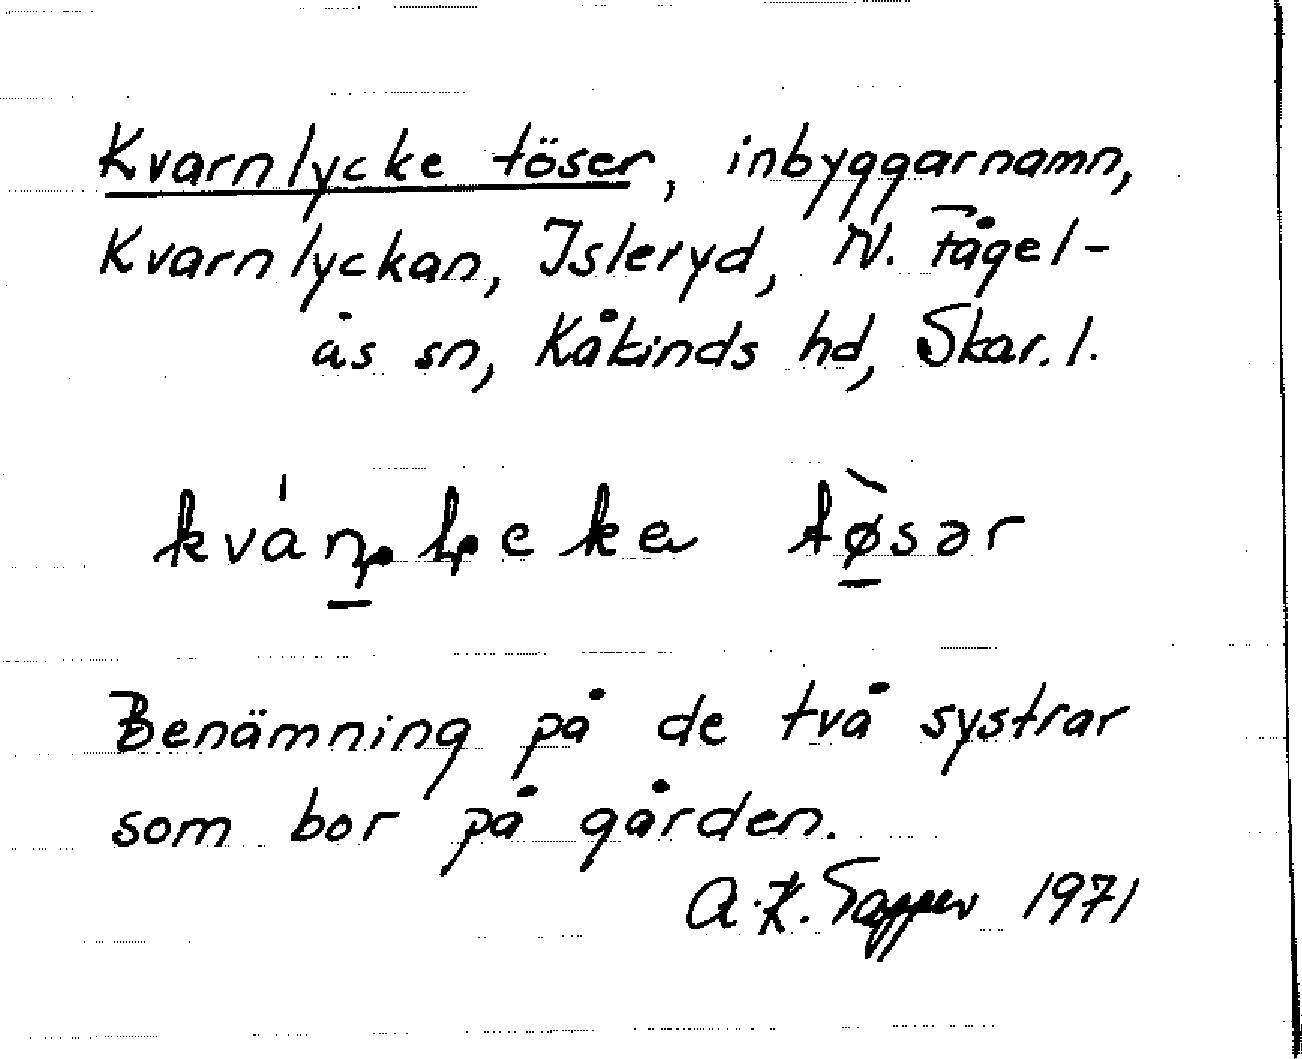 Kvarnlycke töser, inbyggarnamn,
Kvarnlyckan, Isleryd, N. Fågel-
ås sn, Kåkinds hd, Skar. l.
Benämning på de två systrar
som bor på gården.
A.K. Sapper 1971